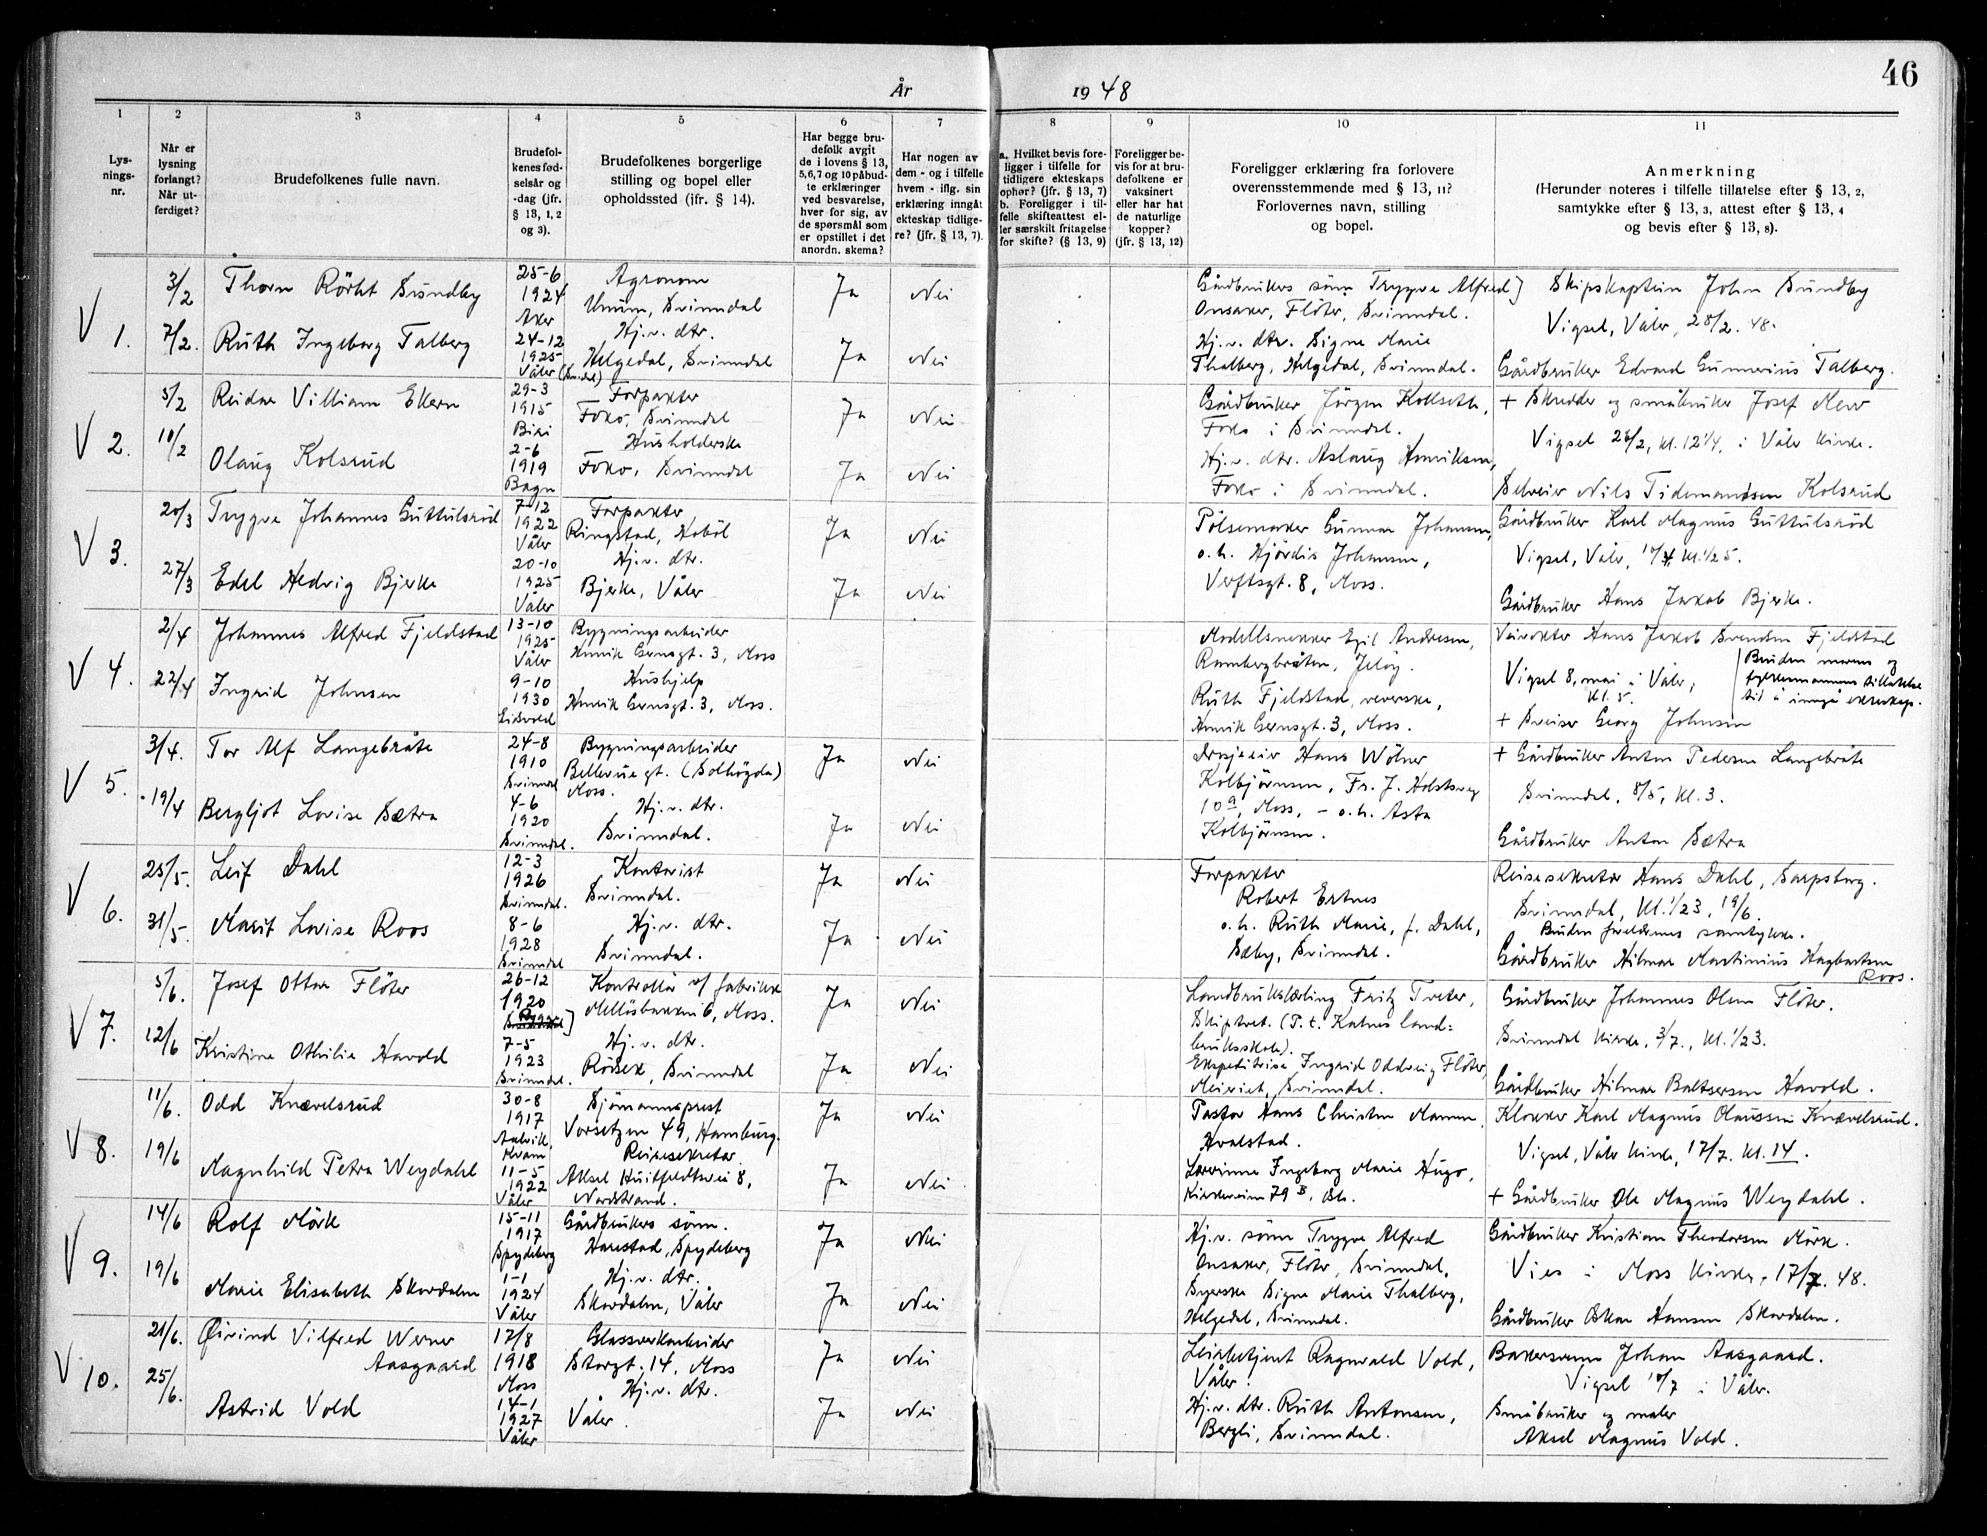 46
År 1948
1 2 3 4 5 6 7 8 9 10 11
Lys-
nings-
nr.
Når er
lysning
forlangt?
Når ut-
ferdiget?
Brudefolkenes fulle navn.
Brudefol-
kenes fød-
selsår og
-dag (jfr.
§ 13, 1, 2
og 3).
Brudefolkenes borgerlige
stilling og bopel eller
opholdssted (ifr. § 14).
Har begge bru-
defolk avgit
de i lovens § 13,
5,6,7 og 10 påbud-
te erklæringer
ved besvarelse,
hver for sig, av
de spørsmål som
er opstillet i det
anordn. skema?
Har nogen av
dem - og i tilfelle
hvem - iflg. sin
erklæring inngåt
ekteskap tidlige-
re? (jfr. § 13, 7).
a. Hvilket bevis fore-
ligger i tilfelle for
tidligere ekteskaps
ophør? (jfr. § 13, 7)
b. Foreligger i til-
felle skifteattest el-
ler særskilt fritagelse
for skifte? (§ 13, 9)
Foreligger be-
vis for at bru-
defolkene er
vaksinert
eller har hat
de naturlige
kopper?
(jfr. § 13, 12)
Foreligger erklæring fra forlovere
overensstemmende med § 13, 11?
Forlovernes navn, stilling
og bopel.
Anmerkning
(Herunder noteres i tilfelle tillatelse efter § 13, 2,
samtykke efter § 13, 3, attest efter § 13, 4
og bevis efter § 13, 8).
V 1.
3/2
7/2.
Thorn Sundby
Ruth Ingeborg Talberg
25-6
1924
Aker
24-12
1925
Våler (Svindal)
Agronom
Unum, Svinndal
Hj.v. dtr.
Helgedal, Svinndal
Ja Nei
Ja Nei
Gårdbrukers sønn Trygve Alfred]
Onsaker, Flöter, Svinndal.
Hj.v. dtr. Signe Marie
Thalberg, Helgedal, Svinndal.
Skipskaptein John Sundby
Vigsel, Våler, 28/2. 48.
Gårdbruker Edvard Gunnerius Talberg.
V 2.
5/2
10/2
Reidar Villiam Ekern
Olaug Kolsrud
29-3
1915
Biri
2-6
1919
Bagn
Forpakter
Foko, Svinndal
Husholderske
Foko, Svinndal
Ja Nei
Ja Nei
Gårdbruker Jörgen Kollseth,
Foko i Svinndal.
Hj.v. dtr. Aslaug Henriksen,
Foko i Svinndal.
+ Skredder og småbruker Josef
Vigsel 28/2, kl. 12 1/4, i Våler kirke.
Selveier Nils Tidemandsen Kolsrud
V 3.
20/3
27/3
Trygve Johannes Guttulsröd
Edel Hedvig Bjerke
7-12
1922
Våler
20-10
1925
Våler
Forpakter
Ringstad, Hobøl
Hj.v. dtr.
Bjerke, Våler
Ja Nei
Ja Nei
Pølsemaker Gunnar Johansen,
o.h. Hjördis Johansen,
Verftsgt. 8, Moss.
Gårdbruker Karl Magnus Guttulsröd
Vigsel, Våler, 10/4, kl. 1/2 5.
Gårdbruker Hans Jakob Bjerke.
V 4.
2/4
22/4
Johannes Alfred Fjeldstad
Ingrid Johnsen
13-10
1925
Våler
9-10
1930
Eidsvold
Bygningsarbeider
Henrik Gernersgt. 3, Moss
Hushjelp
Henrik Gernersgt. 3, Moss.
Modellsnekker Egil Andresen,
Rambergbråten, Jeløy.
Ruth Fjeldstad, veverske,
Henrik Gernersgt. 3, Moss.
Veivokter Hans Jakob Svendsen Fjeldstad
Vigsel 8. mai i Våler,
kl. 5.
Bruden morens og
fylkesmannens tillatelse
til å inngå ekteskap.
+ Sveiser Georg Johnsen
V 5.
3/4.
19/4
Tor Alf Langebråte
Bergljot Lovise Sætra
24-8
1910
Svinndal
4-6
1920
Svinndal.
Bygningsarbeider
Bellevuegt. (Solhögda)
Moss.
Hj.v. dtr.
Svinndal.
Ja Nei
Ja Nei
Drosjeeier Hans Wölner
Kolbjörnsen, Fr. J. Holstsveg
10 a, Moss, - o.h. Asta
Kolbjörnsen.
+ Gårdbruker Anton Pedersen Langebråte
Svinndal, 8/5, kl. 3.
Gårdbruker Anton Sætra
V 6.
25/5.
31/5.
Leif Dahl
Marit Lovise Roos
12-3
1926
Svinndal.
8-6
1928
Svinndal
Kontorist
Svinndal.
Hj.v. dtr.
Svinndal.
Ja Nei
Ja Nei
Forpakter
Robert Ertnes
o.h. Ruth Marie, f. Dahl,
Sæby, Svinndal.
Reisesekretær Hans Dahl, Sarpsborg.
Svinndal, kl. 1/2 3, 19/6.
Bruden foreldrenes samtykke.
Gårdbruker Hilmar Martinius Hagbartsen
Roos.
V 7.
5/6.
12/6
Josef Ottar Flöter
Kristine Othilie Havold
26-12
1920
7-5
1923
Svinndal.
Kontrollör v/ fabrikk
Melløsbakken 6, Moss.
Hj.v. dtr.
Rödsek, Svinndal
Ja Nei
Ja Nei
Landbrukslærling Fritz Tveter,
Skiptvet. (P.t. Kalnes land-
bruksskole).
Ekspeditrise Ingrid Oddveig Flöter,
Meieriet, Svinndal.
Gårdbruker Johannes Olsen Flöter.
Svinndal kirke, 3/7., kl. 1/2 3.
Gårdbruker Hilmar Baltsersen Havold.
V 8.
11/6.
19/6
Odd Knævelsrud
Magnhild Petra Weydahl
30-8
1917
Aalvik,
Kvam
11-5
1922
Våler
Sjömannsprest
Vorsetzen 49, Hamburg.
Reisesekretær
Aksel Huitfeldtsvei 8,
Nordstrand.
Ja Nei
Ja Nei
Pastor Hans Christen Mamen,
Hvalstad.
Lærerinne Ingeborg Marie Hugo,
Kirkeveien 79 B, Oslo.
Klokker Karl Magnus Olaussen Knævelsrud.
Vigsel, Våler kirke, 17/7. kl. 14.
+ Gårdbruker Ole Magnus Weydahl.
V 9.
14/6
19/6
Rolf Mörk
Marie Elisabeth Skovdalen
15-11
1917
Spydeberg
1-1
1924
Våler
Gårdbrukers sönn.
Harestad, Spydeberg
Hj.v. dtr.
Skovdalen, Våler
Ja Nei
Ja Nei
Hj.v. sönn Trygve Alfred
Onsaker, Flöter, Svinndal.
Syerske Signe Marie Thalberg,
Helgedal, Svinndal.
Gårdbruker Kristian Theodorsen Mörk.
Vies i Moss kirke, 17/7. 48.
Gårdbruker Oskar Hansen Skovdalen.
V 10.
21/6.
25/6.
Øivind Vilfred Werner
Aasgaard
Astrid Vold
17/8
1918
Moss
14-1
1927
Våler
Glassverkarbeider
Storgt. 14, Moss
Hj.v. dtr.
Våler.
Ja Nei
Ja Nei
Ragnvald Vold,
Våler.
Hj.v. dtr. Ruth Antonsen,
Bergli, Svinndal.
Bakersvenn Johan Aasgaard.
Vigsel 10/7 i Våler.
Småbruker og maler
Aksel Magnus Vold.